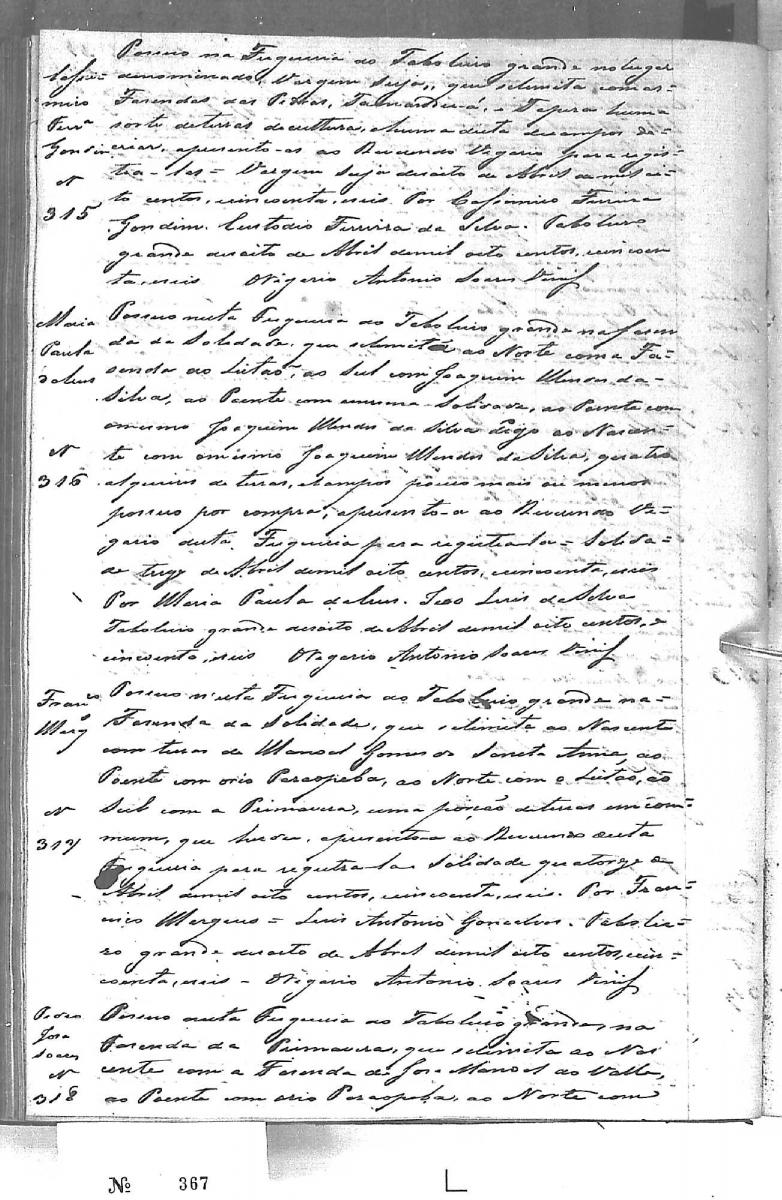 Possuo na Freguesia do Taboleiro grande no lugar
denominado, Vargem Suja,, que selimita com as
Fasendas das Pedras, Tamanduá, e Tapera huma
sorte de terras de cultura, e huma dicta de campos de
criar, apresento-as ao Reverendo Vigario para regis-
tra-las = Vargem Suja desoito de Abril de mil oi-
to centos, e cincoenta, e seis. Por Cassimiro Ferreira
Gondim. Custodio Ferreira da Silva. Taboleiro
grande desoito de Abril de mil oito centos, e cincoen-
ta, e seis O Vigario Antonio Soares
Cassi-
miro
Ferrª
Gondim
N
315
Possuo nesta Freguesia do Taboleiro grande na fasen-
da da Solidade, que selimita ao Norte com a Fa-
senda do Leitaõ, ao Sul com Joaquim Mendes da
Silva, ao Poente com a mesma Solidade, ao Poente com
o mesmo Joaquim Mendes da Silva digo ao Nascen-
te com o mesmo Joaquim Mendes da Silva, quatro
alqueires de terras, e campos pouco mais ou menos
possuo por compra, apresento-a ao Reverendo Vi-
gario desta Freguesia para registra-la = Solida-
de treze de Abril de mil oito centos, e cincoenta, e seis
Por Maria Paula de Jesus. João Luis da Silva
Taboleiro grande desoito de Abril de mil oito centos, e
cincoenta, e seis O Vigario Antonio Soares
Maria
Paula
de Jesus
N
316
Possuo n'esta Freguesia do Taboleiro grande na
Fasenda da Solidade, que selimita ao Nascente
com terras de Manoel Gomes de Sancta Anna, ao
Poente com o rio Paraopeba, ao Norte com o Leitão, ao
Sul com a Primavera, uma porção de terras em com-
mum, que herdei, apresento-a ao Reverendo desta
Freguesia para registra-la Solidade quatorze de
Abril de mil oito centos, e cincoenta, e seis. Por Fran-
cisco Marques = Luis Antonio Gonçalves. Tabolei-
ro grande desoito de Abril de mil oito centos, e cin-
coenta, e seis = O Vigario Antonio Soares
Franco
Marq
N
317
Possuo nesta Freguesia do Taboleiro grande, na
Fasenda da Primavera, que selimita ao Nas-
cente com a Fasenda de Jose Manoel do Valle,
ao Poente com o rio Paraopeba, ao Norte com
Pedro
Jose
Soares
N
318
Nº 367
L